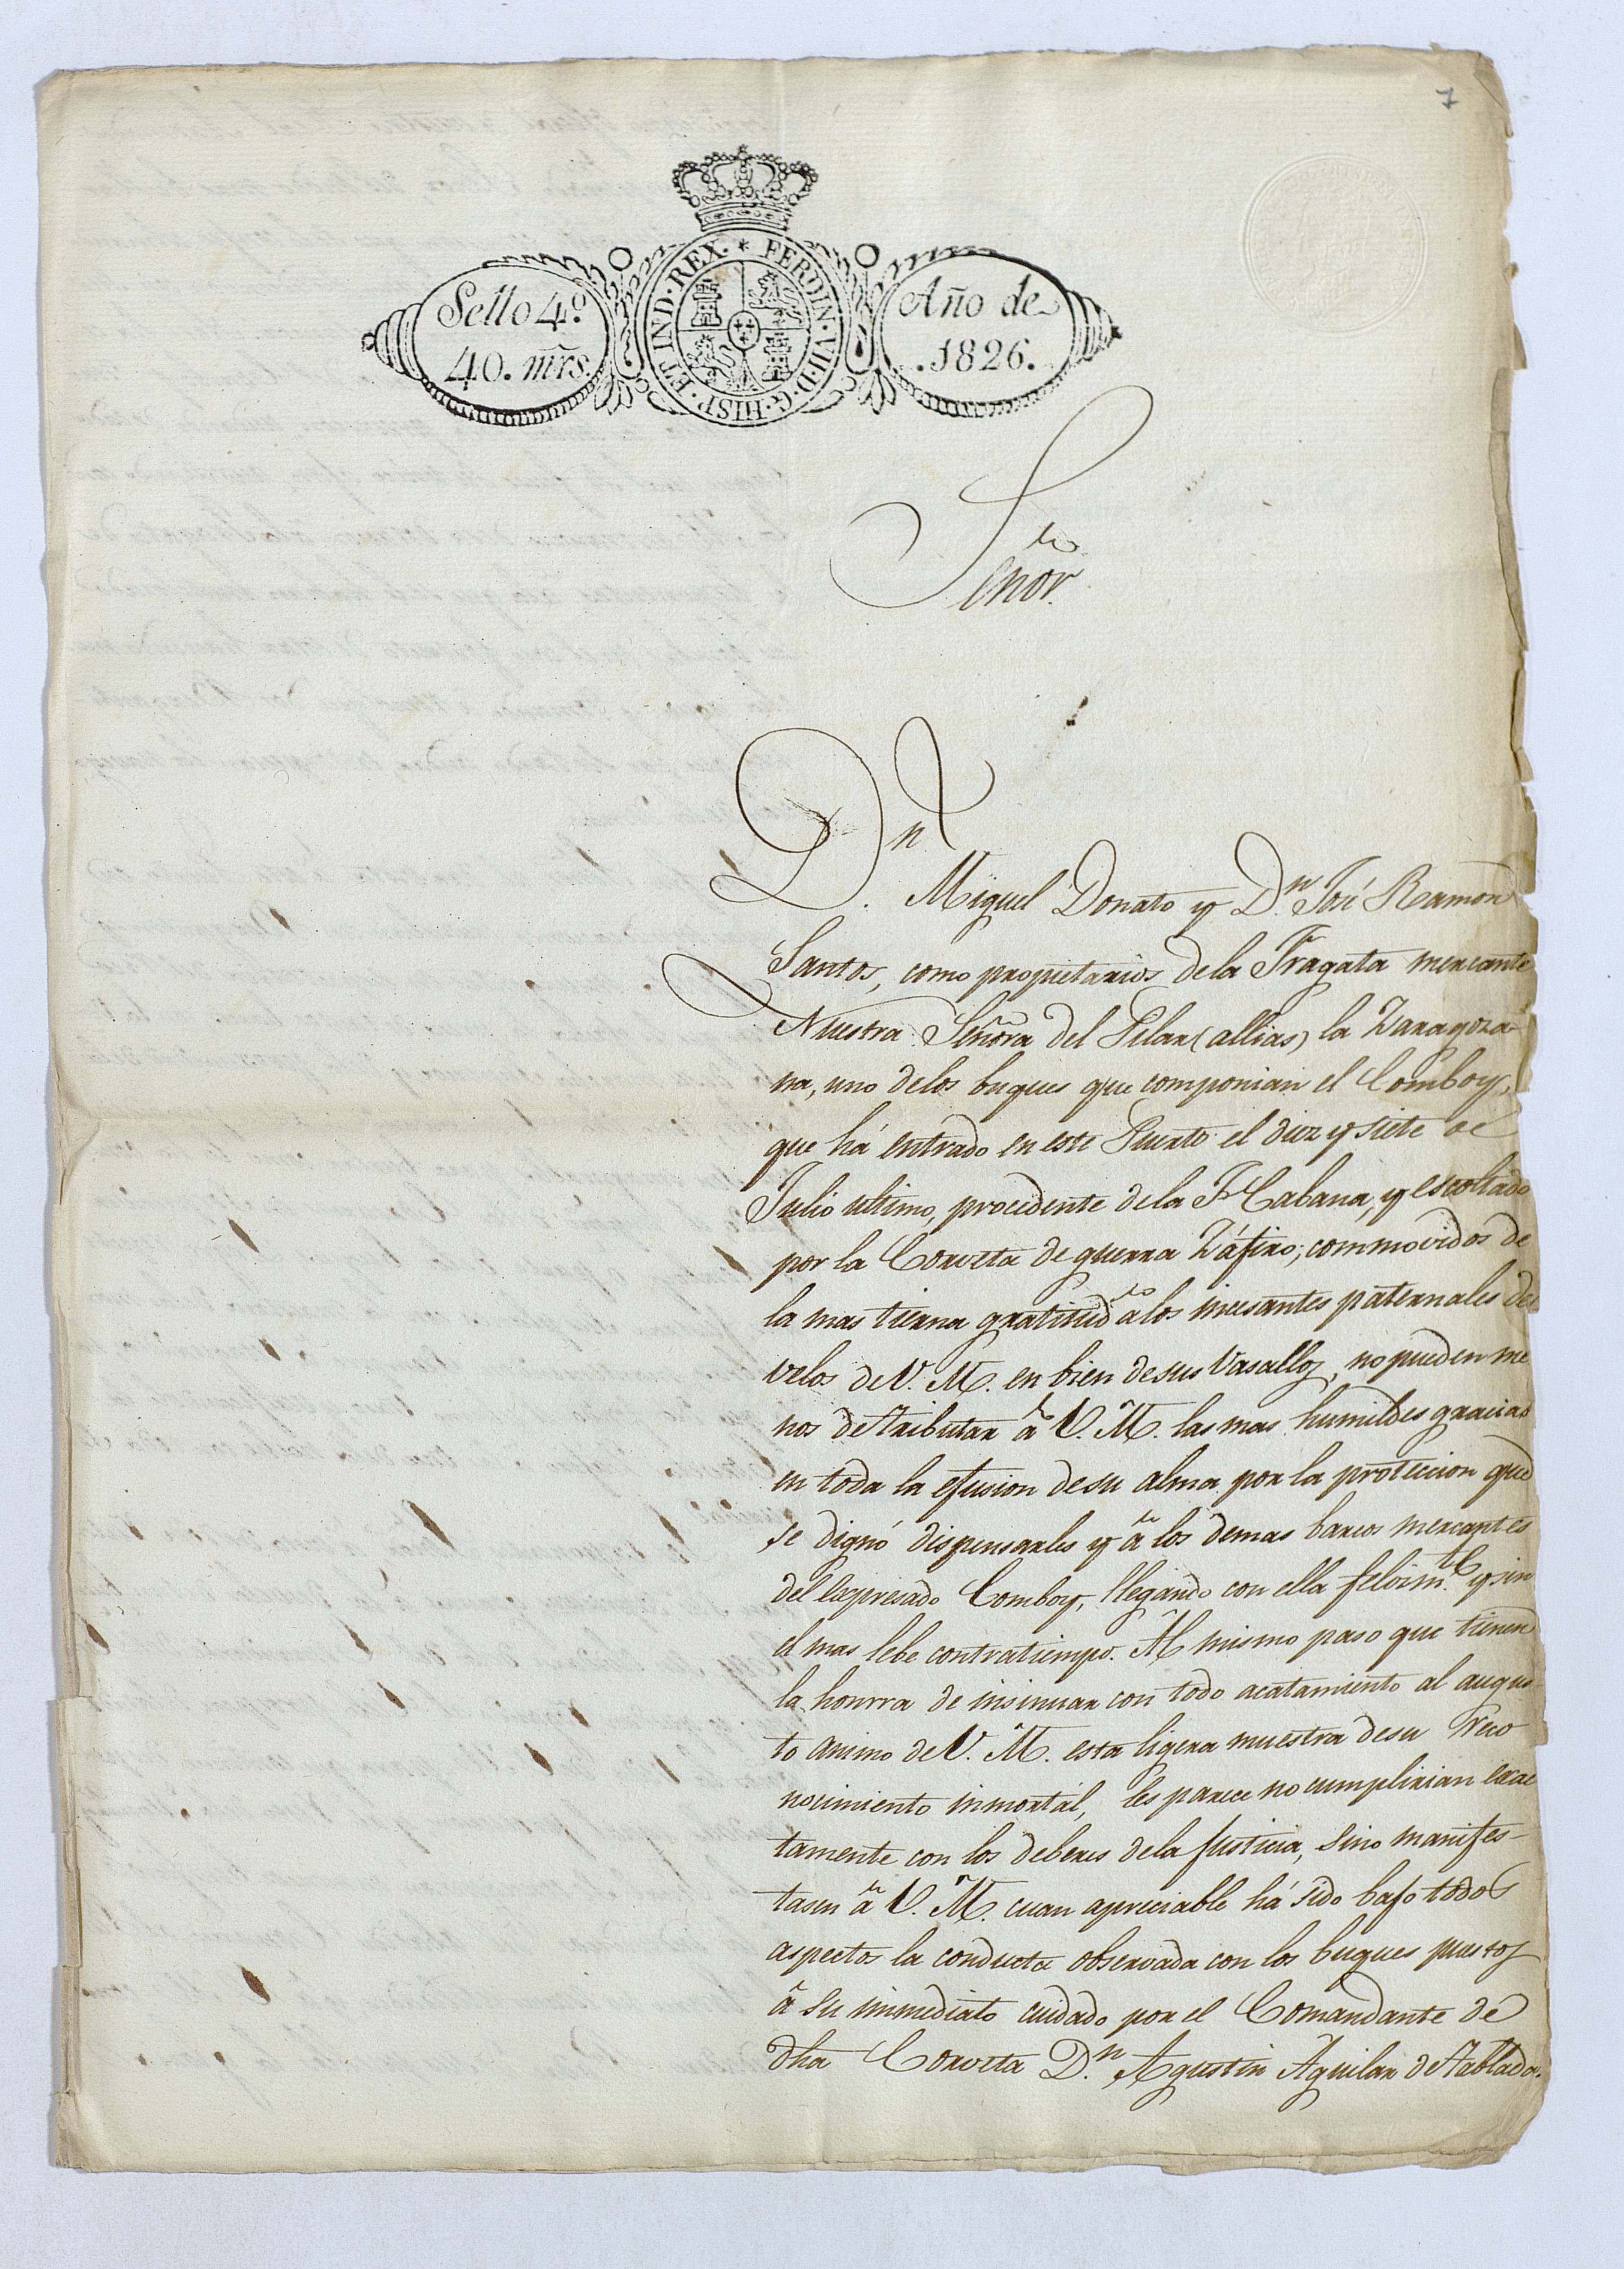 7
Sello 4º
40. mrs.
FERDIN. VII. D. G. HISP. ET IND. REX.
Año de
1826.
Señor.
Dn. Miguel Donato y Dn. José Ramon
Santos, como propietarios dela Fragata mercante
Nuestra Señora del Pilar (allias) la Zaragoza-
na, uno delos buques que componian el Comboy,
que há entrado en este Puerto el diez y siete de
Julio ultimo, procedente dela Habana, y escoltado
por la Corveta de guerra Záfiro; commovidos de
la mas tierna gratitud á los incesantes paternales des
velos de V. M. en bien de sus Vasallos, no pueden me
nos de tributar á V. M. las mas humildes gracias
en toda la efusion de su alma por la proteccion que
se dignó dispensarles y á los demas barcos mercantes
del Expresado Comboy, llegando con ella felizmte. y sin
el mas lebe contratiempo. Al mismo paso que tienen
la honrra de insinuar con todo acatamiento al augus-
to animo de V. M. esta ligera muestra desu reco
nocimiento inmortál, les parece no cumplirian exac
tamente con los deberes dela Justicia, sino manifes-
tasen á V. M. cuan apreciable há sido bajo todos
aspectos la conducta observada con los buques puestos
á su immediato cuidado por el Comandante de
dha Corveta Dn. Agustin Aguilar de Tablada.